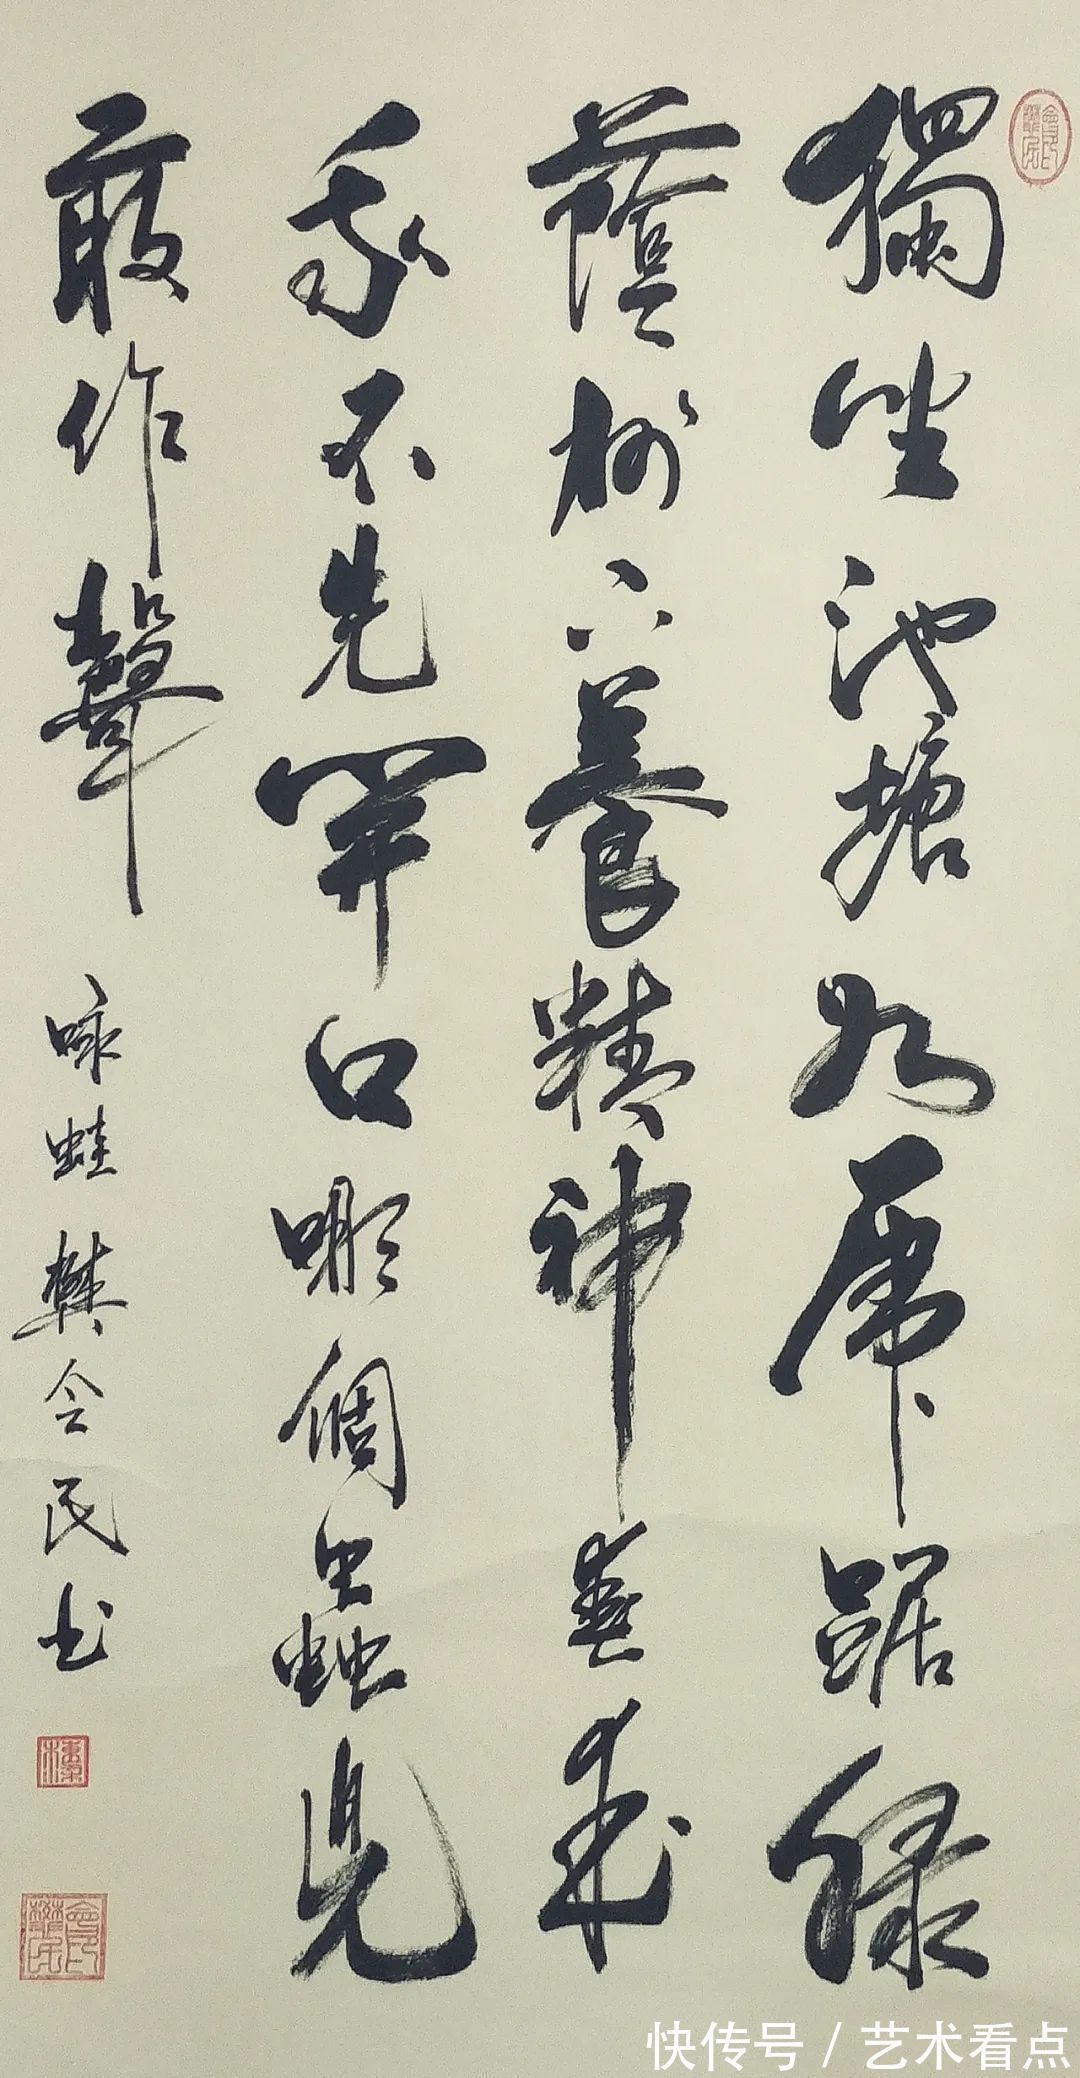 獨坐池塘如虎踞綠
蔭樹下養精神春來
我不先開口哪個蟲兒
敢作聲 咏蛙 樊会民书
快传号 / 艺术看点